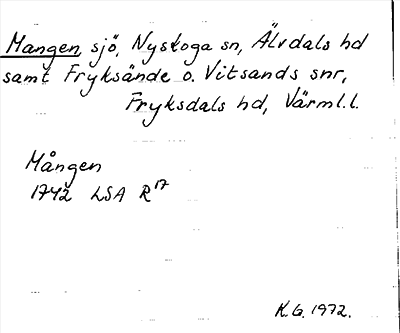 Mangen, sjö, Nyskoga sn, Älvdals hd
samt Fryksände o. Vitsands snr,
Fryksdals hd, Värml.l.
Mången
1742 LSA R17
K.G. 1972.